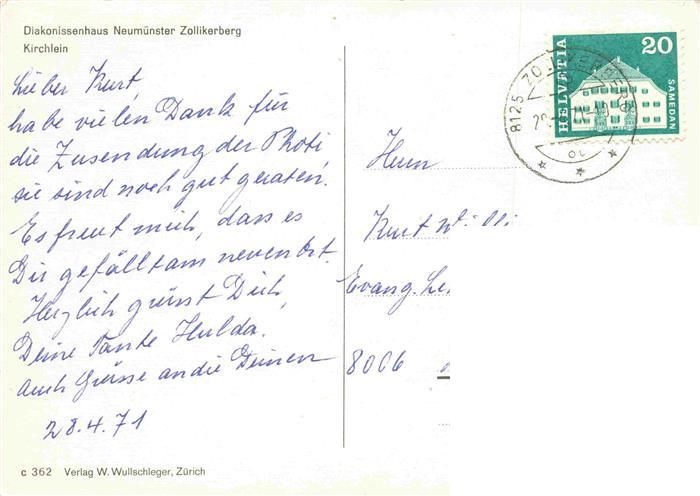 Diakonissenhaus Neumünster Zollikerberg
Kirchlein
Lieber Kurt,
habe vielen Dank für
die Zusendung der Photi,
sie sind noch gut geraten.
Es freut mich, dass es
Dir gefällt am neuen Ort.
Herzlich grüsst Dich,
Deine Tante Hulda.
Auch Grüsse an die Deinen
28.4.71
c 362 Verlag W. Wullschleger, Zürich
HELVETIA
20
SAMEDAN
8125 ZOLLIKERBERG
Herrn
Kurt
Evang.
8006